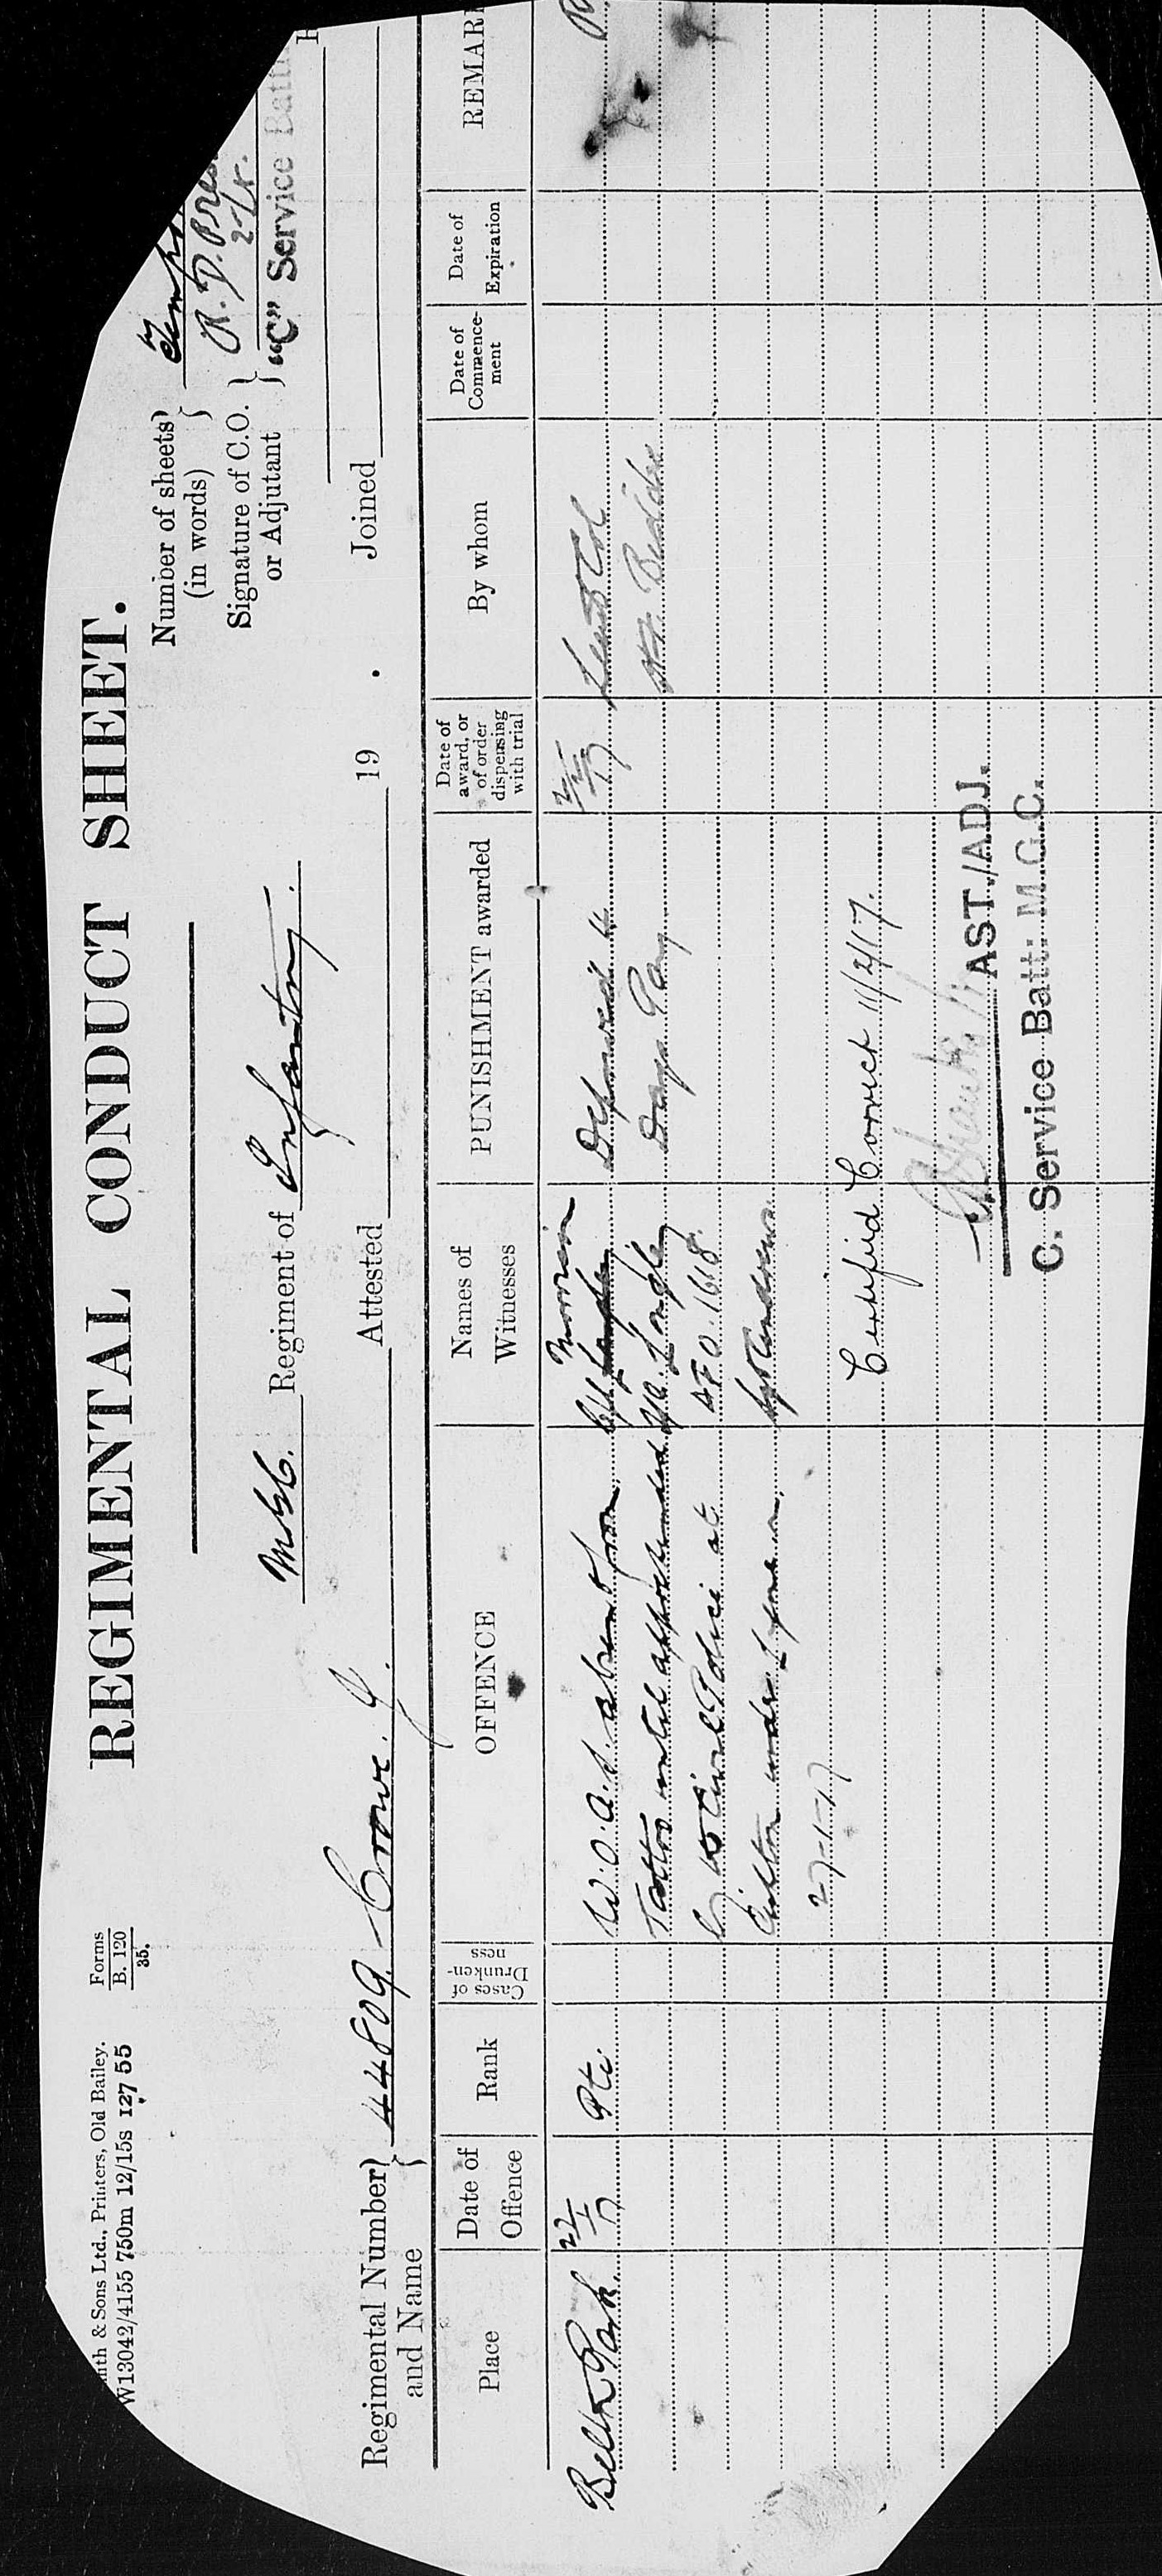 & Sons Ltd., Printers, Old Bailey.
W13042/4155 750m 12/15s 127 55
Forms
B. 120
35.
REGIMENTAL CONDUCT SHEET.
Number of sheets
(in words)
Signature of C.O.
or Adjutant
"C" Service Batt
M.G.C. Regiment of Infantry.
Regimental Number
and Name
44809 Crowe. J.
Attested 19 . Joined
Place
Date of
Offence
Rank
Cases of
Drunken-
ness
OFFENCE
Names of
Witnesses
PUNISHMENT awarded
Date of
award, or
of order
dispensing
with trial
By whom
Date of
Commence-
ment
Date of
Expiration
REMAR
Belton Park. 22/1/17 Pte. W.O.A.S. absent from
Tattoo until apprehended
by Civil Police at
under Lyne
27-1-17
Morrison
A.F.O. 1618.
Sgt
Deprived 4
Days Pay
2/2/17
Lieut Col
Certified Correct 11/2/17.
AST./ADJ.
C. Service Batt: M.G.C.